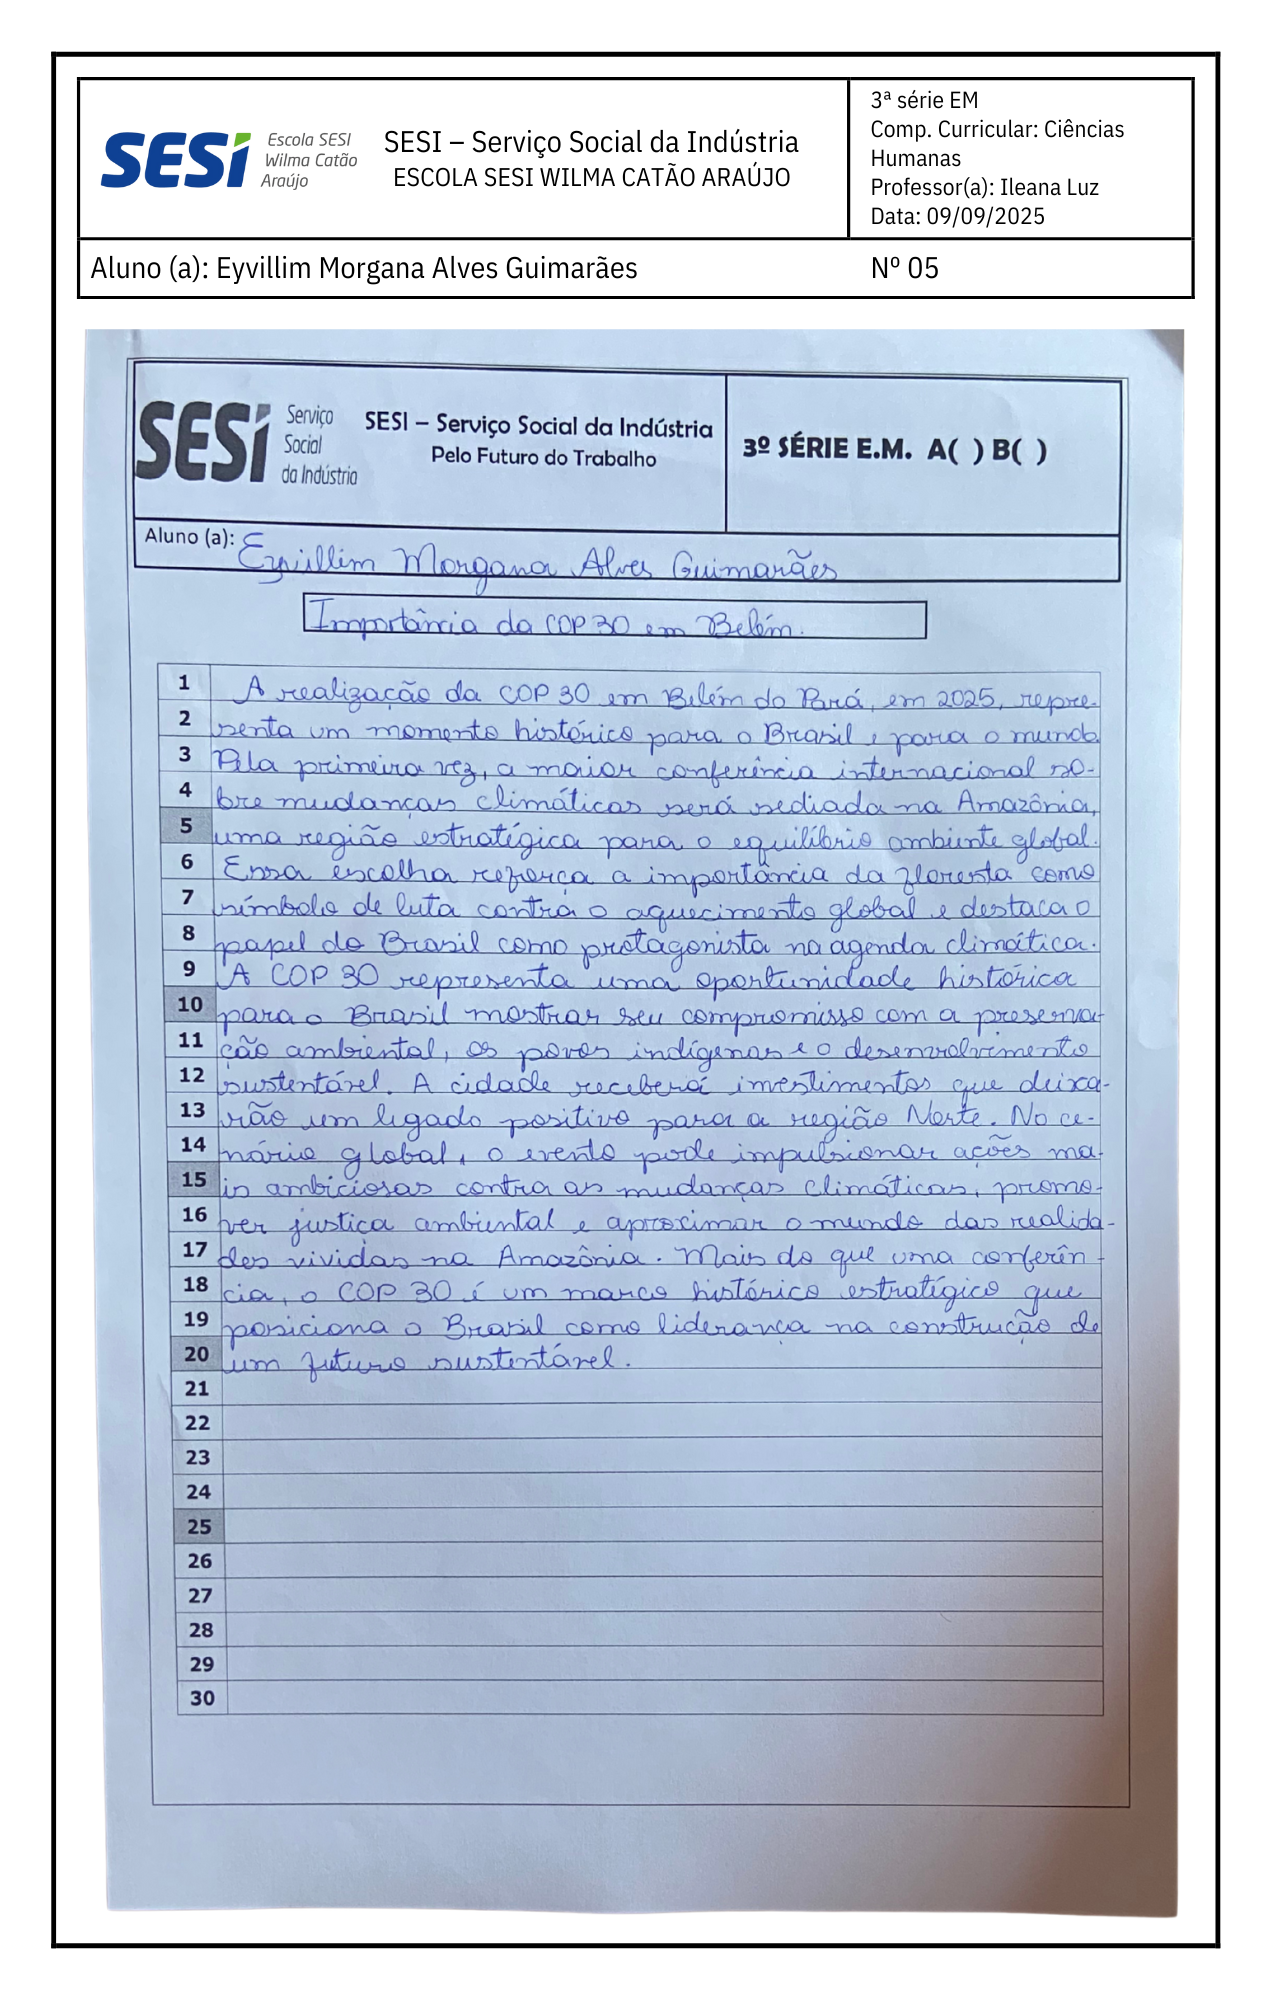 SESI
Escola SESI
Wilma Catão
Araújo
SESI – Serviço Social da Indústria
ESCOLA SESI WILMA CATÃO ARAÚJO
3ª série EM
Comp. Curricular: Ciências
Humanas
Professor(a): Ileana Luz
Data: 09/09/2025
Aluno (a): Eyvillim Morgana Alves Guimarães
Nº 05
SESI
Serviço
Social
da Indústria
SESI – Serviço Social da Indústria
Pelo Futuro do Trabalho
3º SÉRIE E.M. A( ) B( )
Aluno (a): Eyvillim Morgana Alves Guimarães
Importância da COP 30 em Belém.
1 A realização da COP 30 em Belém do Pará, em 2025, repre-
2 senta um momento histórico para o Brasil e para o mundo.
3 Pela primeira vez, a maior conferência internacional so-
4 bre mudanças climáticas será sediada na Amazônia,
5 uma região estratégica para o equilíbrio ambiente global.
6 Essa escolha reforça a importância da floresta como
7 símbolo de luta contra o aquecimento global e destaca o
8 papel do Brasil como protagonista na agenda climática.
9 A COP 30 representa uma oportunidade histórica
10 para o Brasil mostrar seu compromisso com a preserva-
11 ção ambiental, os povos indígenas e o desenvolvimento
12 sustentável. A cidade receberá investimentos que deixa-
13 rão um legado positivo para a região Norte. No ce-
14 nário global, o evento pode impulsionar ações ma-
15 is ambiciosas contra as mudanças climáticas, promo-
16 ver justiça ambiental e aproximar o mundo das realida-
17 des vividas na Amazônia. Mais do que uma conferên-
18 cia, o COP 30 é um marco histórico estratégico que
19 posiciona o Brasil como liderança na construção de
20 um futuro sustentável.
21
22
23
24
25
26
27
28
29
30